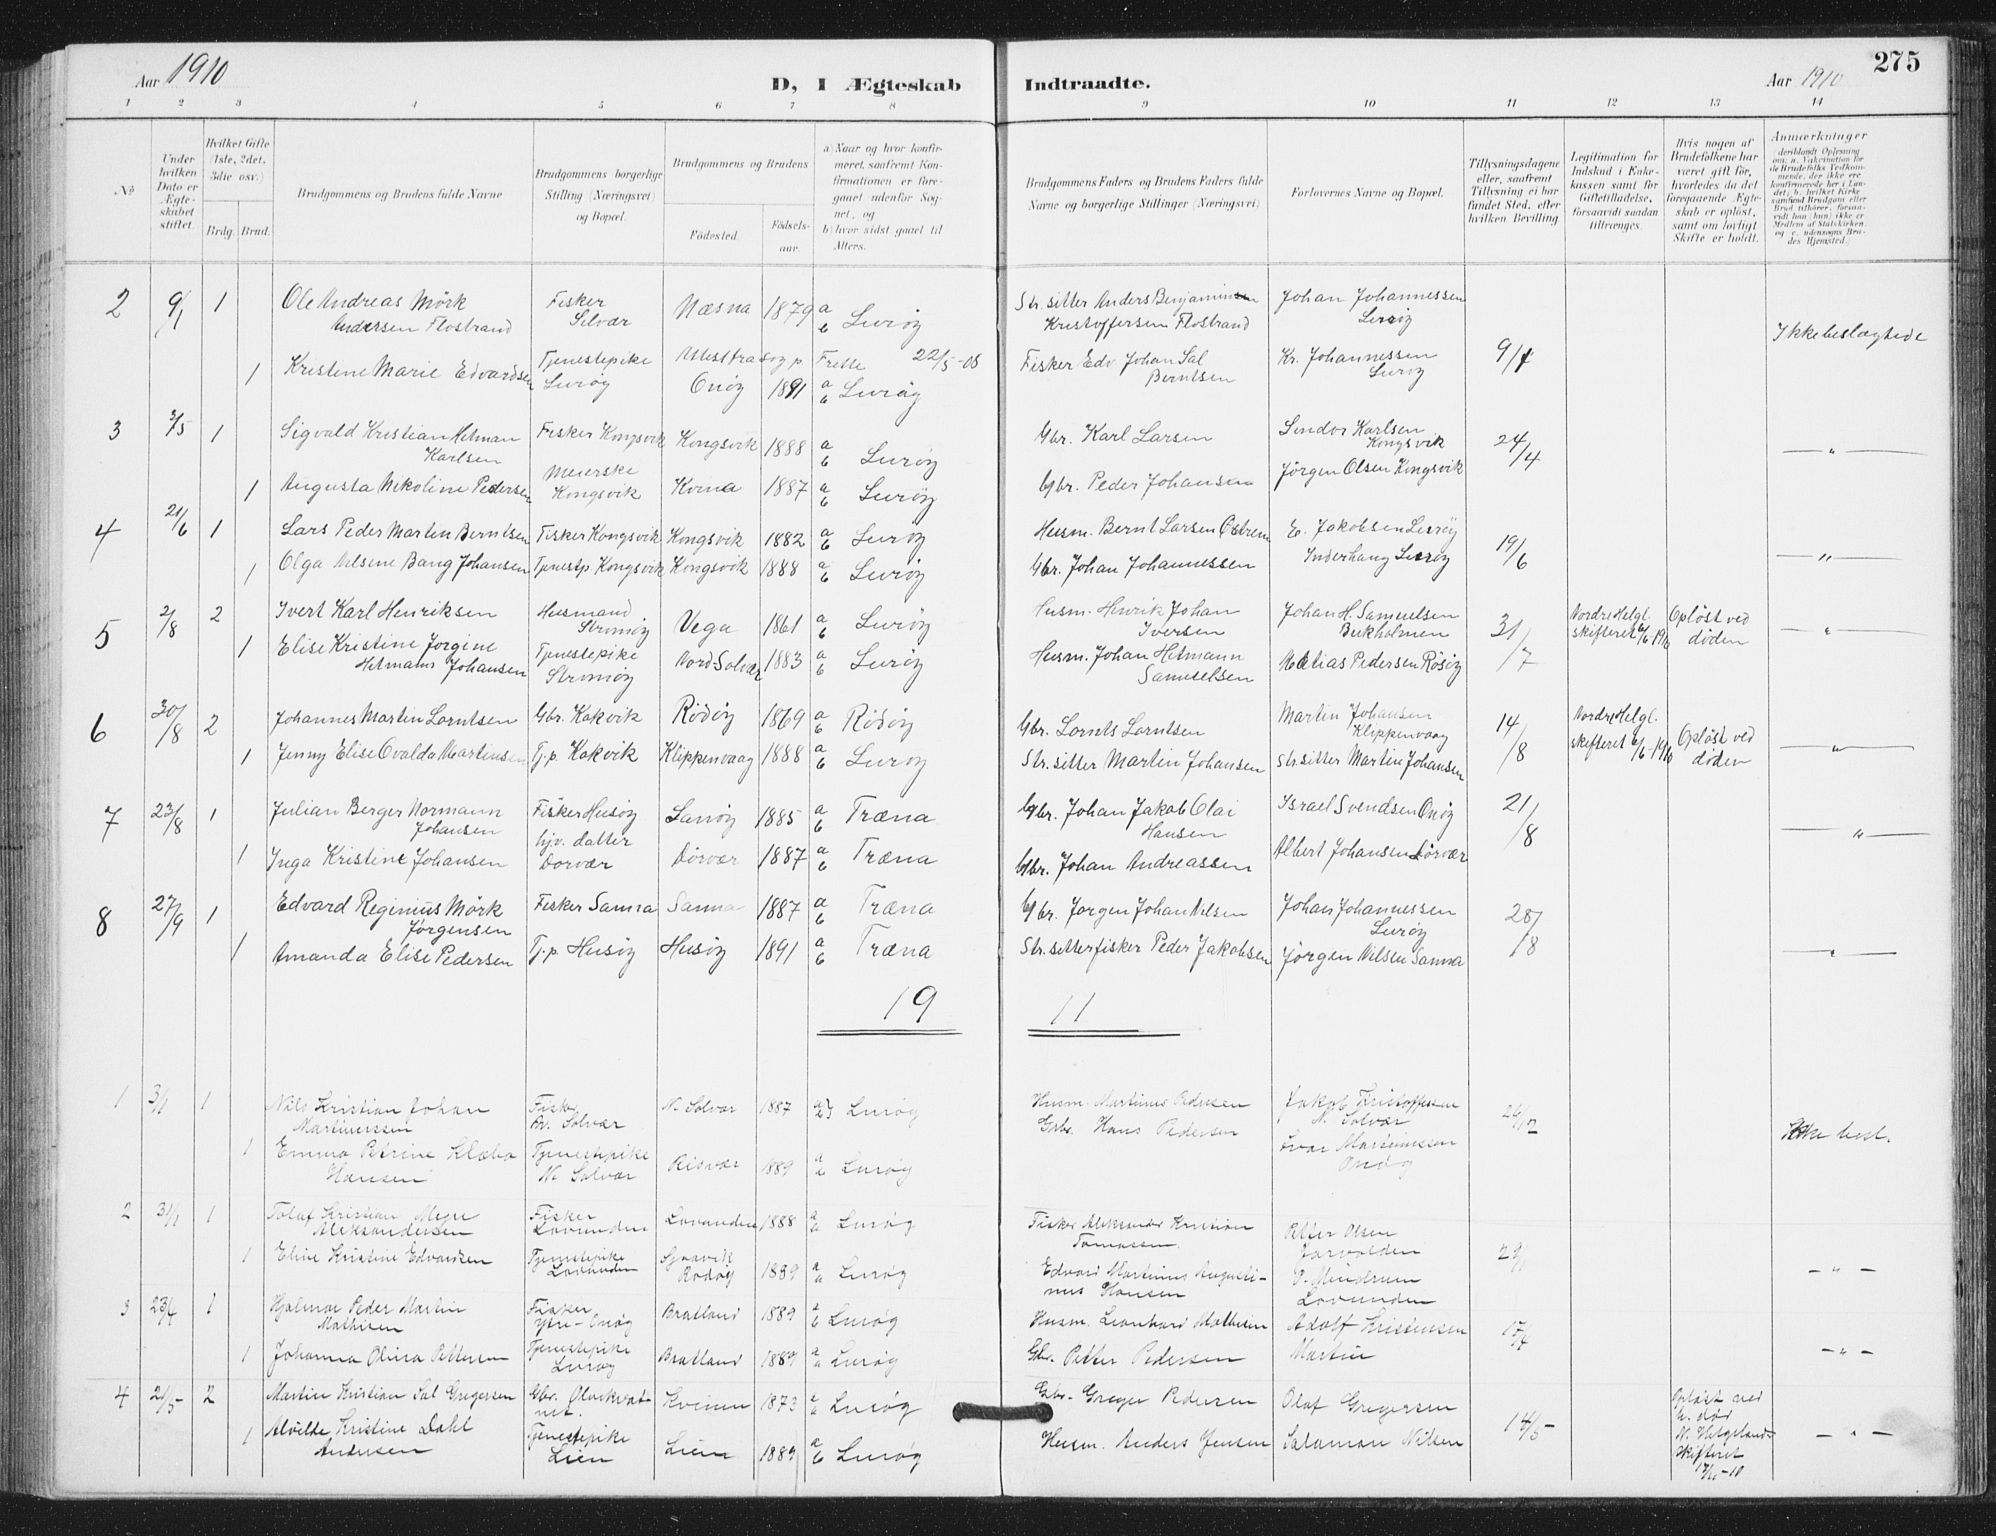 Aar 1910
D, I Ægteskab
Indtraadte.
Aar 1910
275
1 2 3 4 5 6 7 8 9 10 11 12 13 14
№
Under hvilken Dato er Ægteskabet stiftet.
Hvilket Gifte (1ste, 2det, 3die osv.)
Brdg. Brud.
Brudgommens og Brudens fulde Navne
Brudgommens borgerlige Stilling (Næringsvei) og Bopæl.
Brudgommens og Brudens
Fødested. Fødselsaar.
a) Naar og hvor konfirmeret, saafremt Konfirmationen er foregaaet udenfor Sognet, og
b) hvor sidst gaaet til Alters.
Brudgommens Faders og Brudens Faders fulde Navne og borgerlige Stillinger (Næringsvei)
Forlovernes Navne og Bopæl.
Tillysningsdagene eller, saafremt Tillysning ei har fundet Sted, efter hvilken Bevilling
Legitimation for Indskud i Enkekassen samt for Giftetilladelse, forsaavidt saadan tiltrænges.
Hvis nogen af Brudefolkene har været gift før, hvorledes da det foregaaende Ægteskab er opløst, samt om lovligt Skifte er holdt.
Anmærkninger
2 9/1 1 Ole Andreas Mörk Andersen Flostrand Fisker Selvær Næsna 1879 a b Luröy Str.sitter Anders Benjaminsen Kristoffersen Flostrand Johan Johannessen Luröy Ikke beslægtede
1 Kristine Marie Edvardsen Tjenestepike Luröy Onöy 1891 22/5-05 a b Luröy Fisker Edv. Johan Sal Berntsen Kr. Johannessen Luröy 9/1
3 2/5 1 Sigvald Kristian Hetman Karlsen Fisker Kongsvik Kongsvik 1888 a b Luröy Gbr. Karl Larsen Sindor Karlsen Kongsvik 24/4 — " —
1 Augusta Nikoline Pedersen Meierske Kongsvik Kvina 1887 a b Luröy Gbr. Peder Johansen Jörgen Olsen Kongsvik
4 21/6 1 Lars Peder Martin Berntsen Fisker Kongsvik Kongsvik 1882 a b Luröy Husm. Bernt Larsen Östrem E. Jakobsen Luröy 19/6 — " —
1 Olga Nilsine Bang Johansen Tjenestp. Kongsvik Kongsvik 1888 a b Luröy Gbr. Johan Johannessen Inderhaug Luröy
5 2/8 2 Ivert Karl Henriksen Husmand Stromöy Vega 1861 a b Luröy Husm. Henrik Johan Iversen Johan H. Samuelsen Bukholmen 31/7 Nordre Helgl. skifteret 6/6-1910 Opløst ved döden — " —
1 Elise Kristine Jörgine Hetmans Johansen Tjenestepike Stromöy Nord Solvær 1883 a b Luröy Husm. Johan Hetmann Samuelsen Matias Pedersen Rösöy
6 30/8 2 Johannes Martin Lorntsen Gbr. Kakvik Rödöy 1869 a b Rödöy Gbr. Lornts Lorntsen Martin Johansen Klippenvaag 14/8 Nordre Helgl. skifteret 6/6-1910 Opløst ved döden — " —
1 Jenny Elise Ovalda Martinsen Tj.p. Kakvik Klippenvaag 1888 a b Luröy Str.sitter Martin Johansen Str.sitter Martin Johansen
7 23/8 1 Julian Berger Normann Johansen Fisker Husöy Sanöy 1885 a b Træna Gbr. Johan Jakob Olai Hansen Israel Svendsen Onöy 21/8 — " —
1 Inga Kristine Johansen hjv. datter Dörvær Dörvær 1887 a b Træna Gbr. Johan Andreassen Albert Johansen Dörvær
8 27/9 1 Edvard Reginius Mörk Jörgensen Fisker Sanna Sanna 1887 a b Træna Gbr. Jörgen Johan Nilsen Johan Johannessen Luröy 28/8 — " —
1 Amanda Elise Pedersen Tj.p. Husöy Husöy 1891 a b Træna Str.sitter fisker Peder Jakobsen Jörgen Nilsen Sanna
19 11
1 3/1 1 Nils Kristian Johan Martinussen Fisker N. Solvær N. Solvær 1887 Luröy Husm. Martinus Pedersen Jakob Kristoffersen N. Solvær 26/12 Ikke besl.
1 Emma Petrine Klæbo Hansen Tjenestepike N. Solvær Risvær 1889 Luröy Gbr. Hans Pedersen Ivar Martinussen Onöy
2 31/1 1 Tolaf Kristian Meyer Aleksandersen Fisker Lovunden Lovunden 1888 Luröy Fisker Aleksander Kristian Tomassen Petter Olsen 29/1 — " —
1 Eline Kristine Edvardsen Tjenestepike Lovunden Sjonvik Rödöy 1889 Luröy Edvard Martinus Augustinus Hansen Lovunden
3 23/4 1 Hjalmar Peder Martin Mathisen Fisker Ytre-Onöy Bratland 1889 Luröy Husm. Leonhard Mathisen Adolf Kristensen 17/4 — " —
1 Johanna Olina Pettersen Tjenestepike Luröy Bratland 1889 Luröy Gbr. Petter Pedersen Martin
4 21/5 2 Martin Kristian Sal Gregersen Gbr. Kvinen 1873 Luröy Gbr. Greger Pedersen Olaf Gregersen 14/5 Opløst ved h. död N. Helgelands Skifteret — " —
1 Alvilde Kristine Dahl Andersen Tjenestepike Lien Lien 1889 Luröy Husm. Anders Jensen Salamon Nilsen